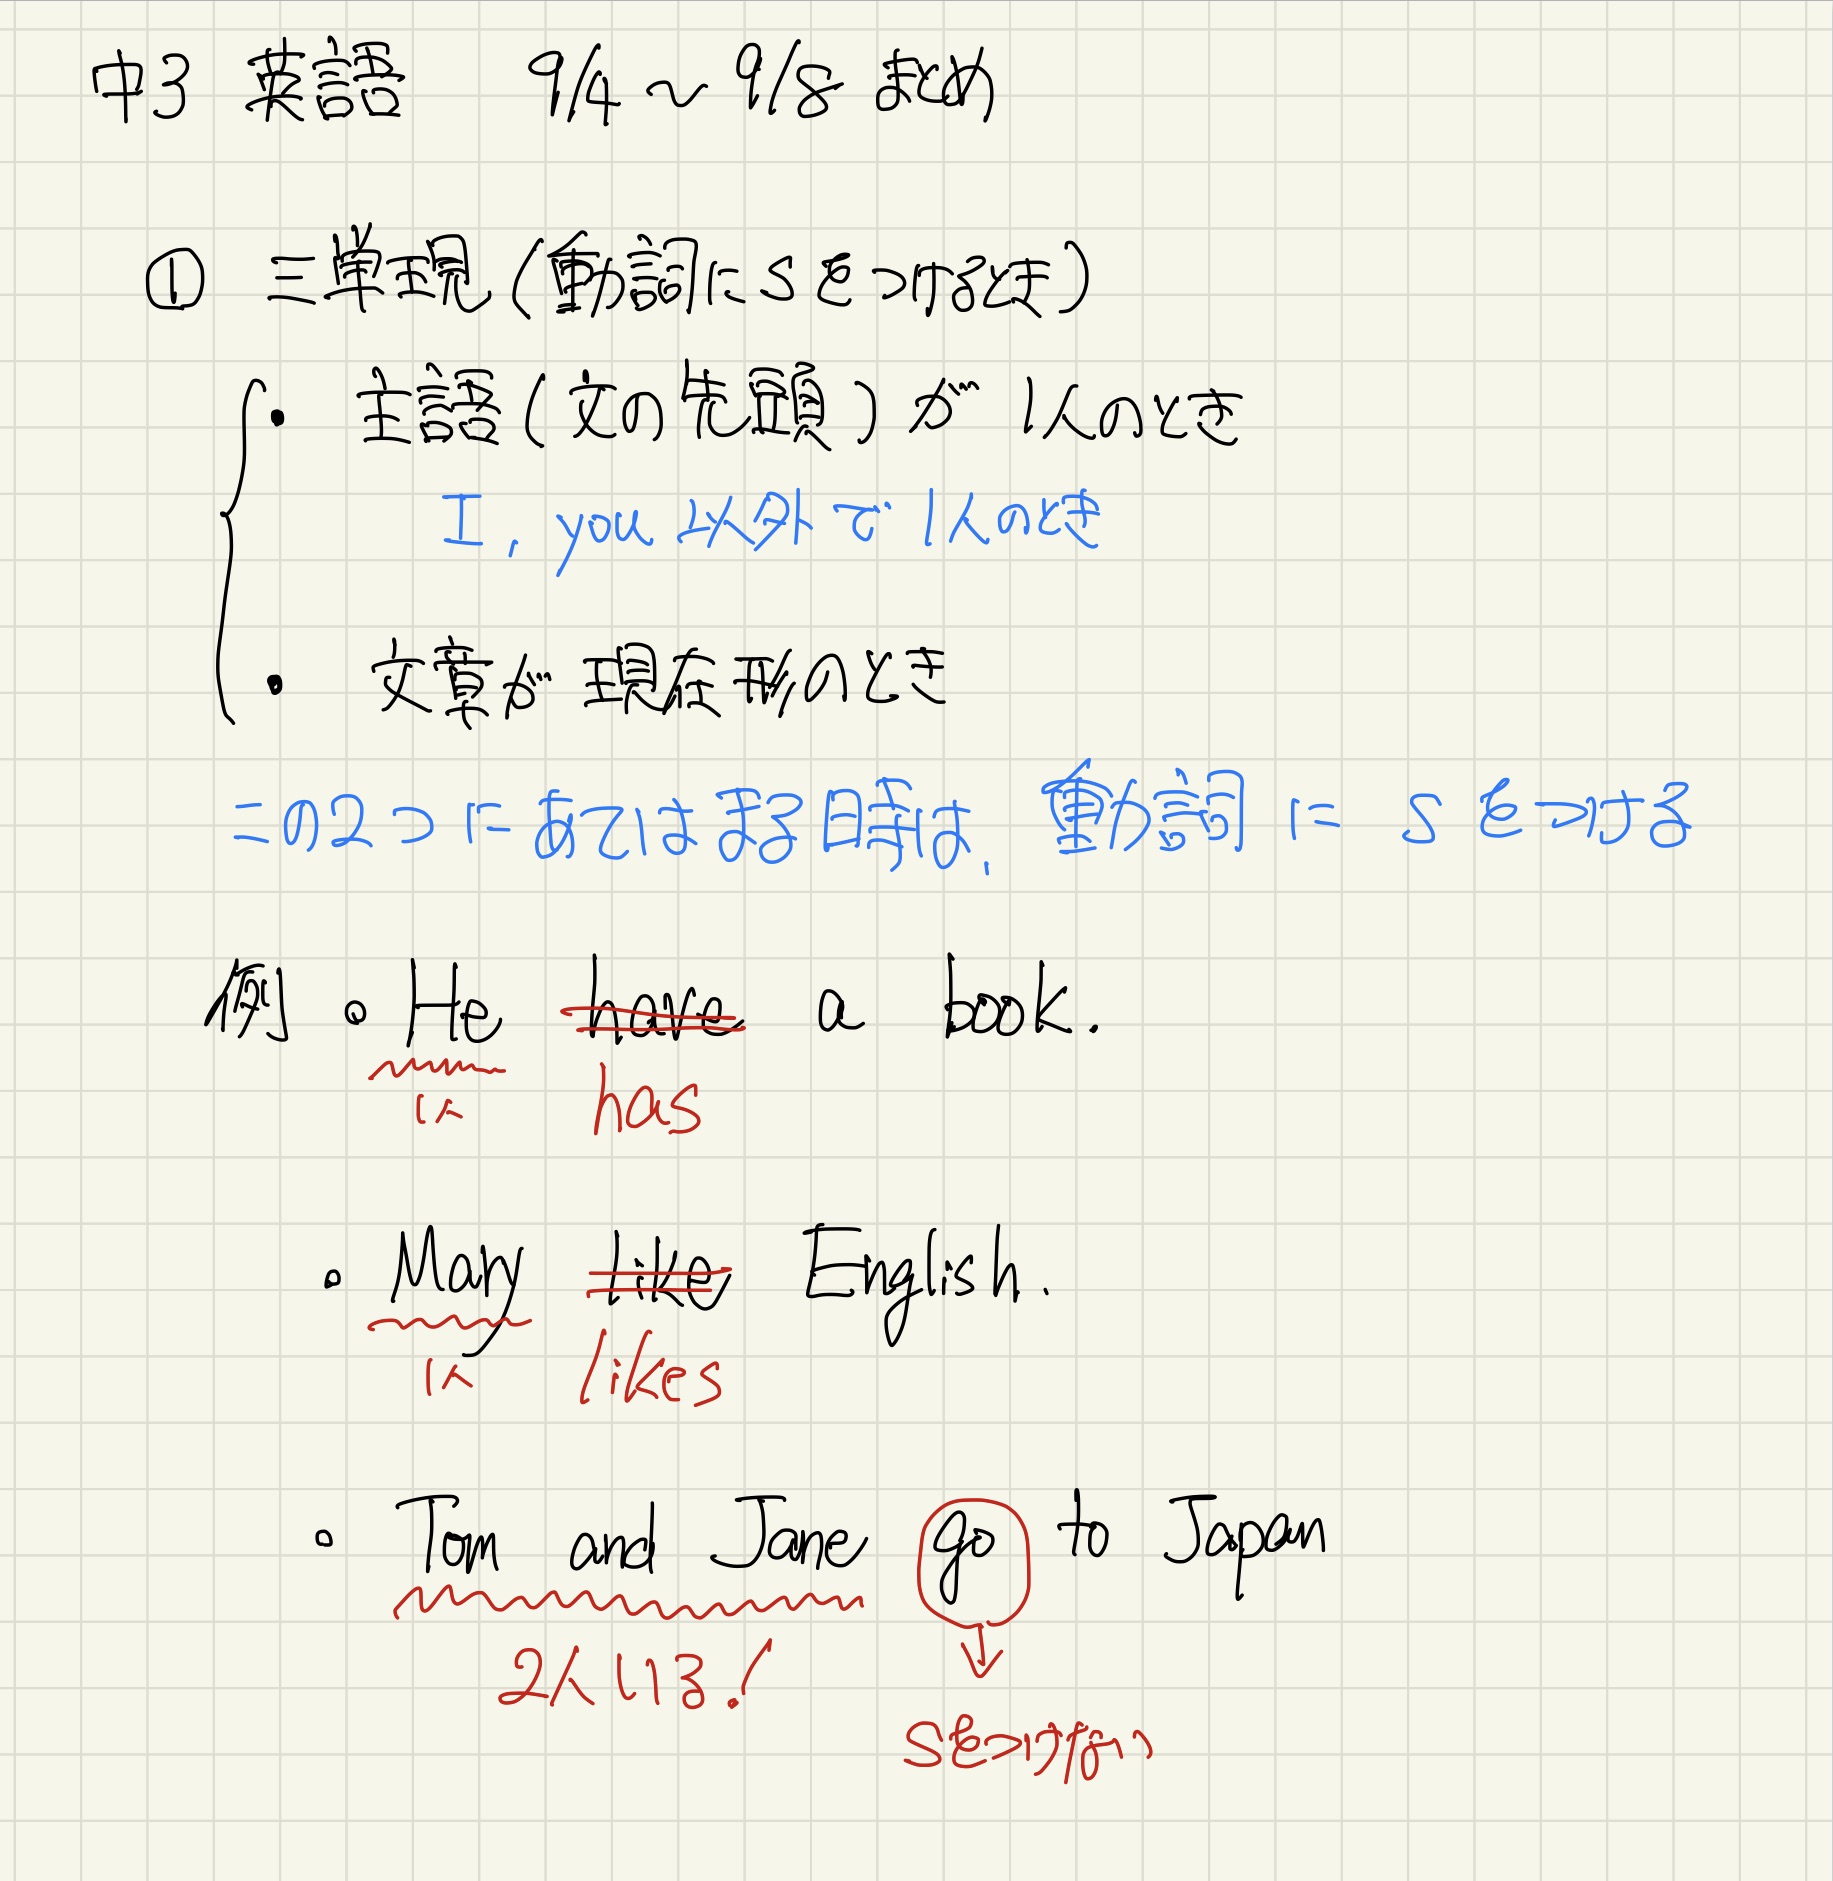 中3 英語 9/4〜9/8 まとめ
① 三単現(動詞にsをつけるとき)
• 主語(文の先頭)が1人のとき
I, you 以外で1人のとき
• 文章が現在形のとき
この2つにあてはまる時は、動詞に s をつける
例 • He have a book.
1人 has
• Mary like English.
1人 likes
• Tom and Jane go to Japan
2人いる!
sをつけない